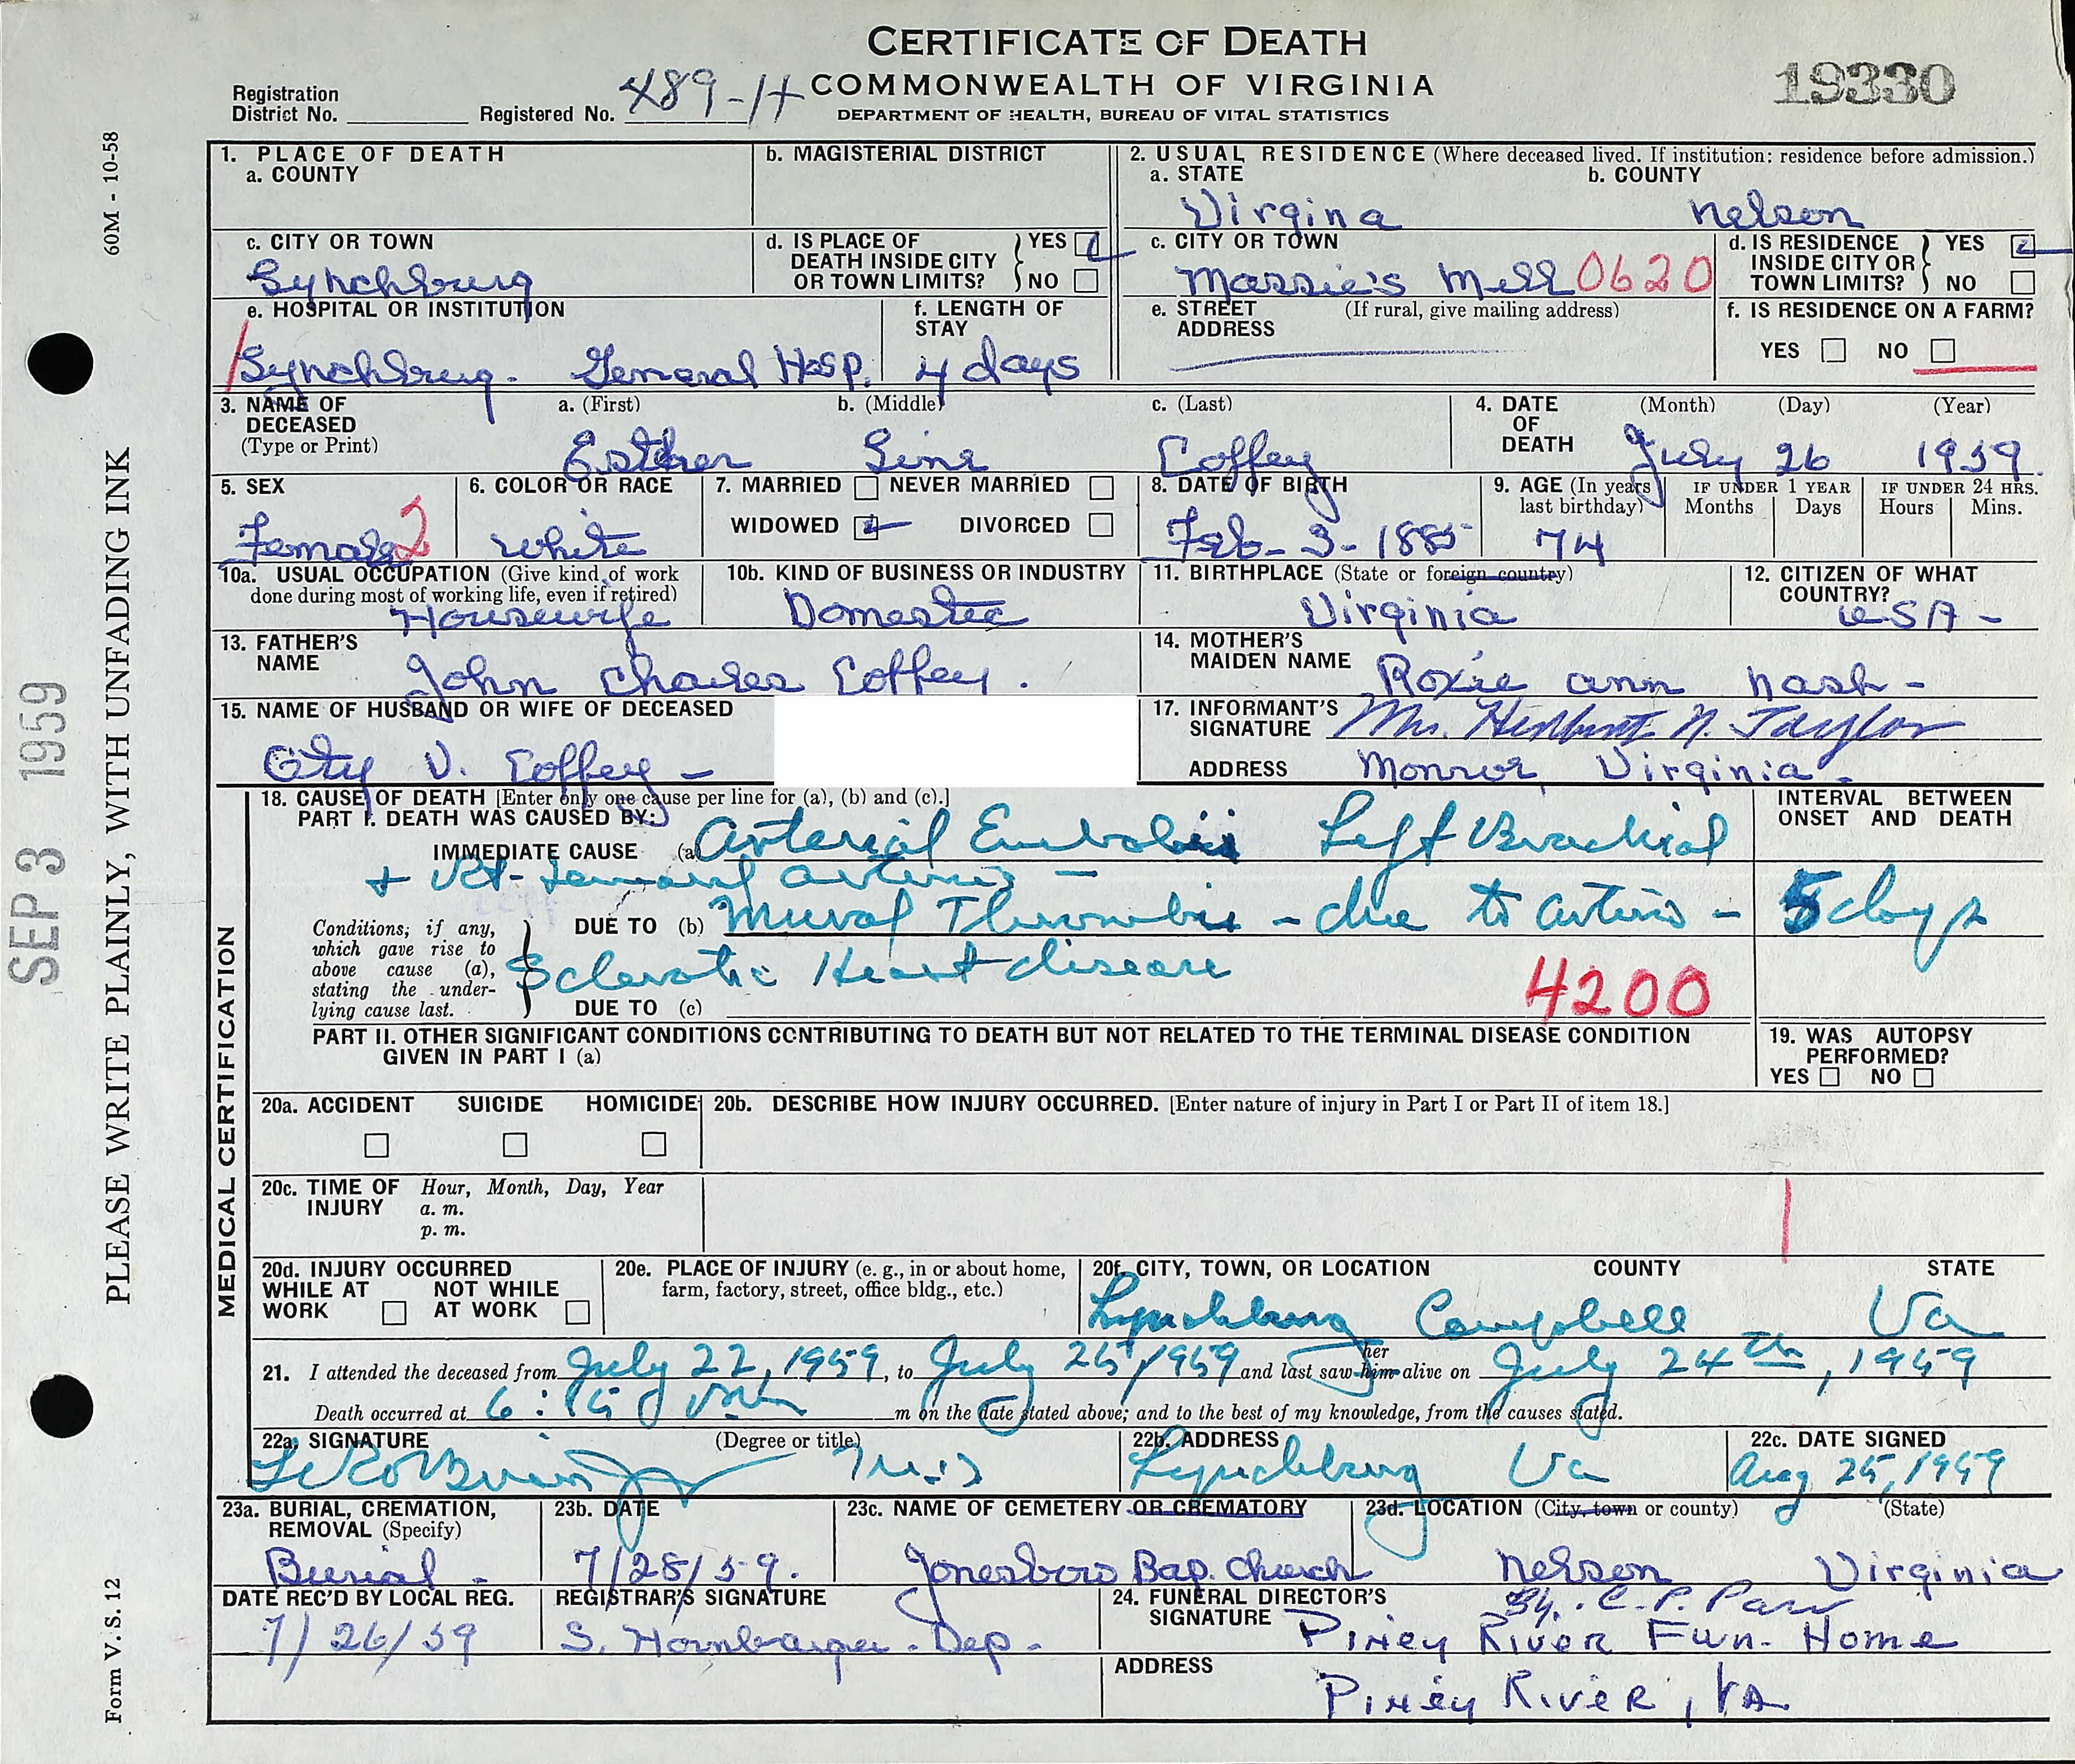 CERTIFICATE OF DEATH
COMMONWEALTH OF VIRGINIA
DEPARTMENT OF HEALTH, BUREAU OF VITAL STATISTICS
19330
Registration District No. Registered No. 489-H
60M - 10-58
PLEASE WRITE PLAINLY, WITH UNFADING INK
SEP 3 1959
Form V. S. 12
1. PLACE OF DEATH
a. COUNTY
b. MAGISTERIAL DISTRICT
2. USUAL RESIDENCE (Where deceased lived. If institution: residence before admission.)
a. STATE b. COUNTY
Virgina Nelson
c. CITY OR TOWN
Lynchburg
d. IS PLACE OF DEATH INSIDE CITY OR TOWN LIMITS? YES NO
c. CITY OR TOWN
Massie's Mill 0620
d. IS RESIDENCE INSIDE CITY OR TOWN LIMITS? YES NO
e. HOSPITAL OR INSTITUTION
Lynchburg. General Hosp.
f. LENGTH OF STAY
4 days
e. STREET ADDRESS (If rural, give mailing address)
f. IS RESIDENCE ON A FARM?
YES NO
3. NAME OF DECEASED (Type or Print)
a. (First) b. (Middle) c. (Last)
Esther Coffey
4. DATE OF DEATH (Month) (Day) (Year)
July 26 1959.
5. SEX
Female 2
6. COLOR OR RACE
White
7. MARRIED NEVER MARRIED
WIDOWED DIVORCED
8. DATE OF BIRTH
Feb- 3- 1885
9. AGE (In years last birthday)
74
IF UNDER 1 YEAR Months Days
IF UNDER 24 HRS. Hours Mins.
10a. USUAL OCCUPATION (Give kind of work done during most of working life, even if retired)
Housewife
10b. KIND OF BUSINESS OR INDUSTRY
Domestic
11. BIRTHPLACE (State or foreign country)
Virginia
12. CITIZEN OF WHAT COUNTRY?
USA -
13. FATHER'S NAME
John Charles Coffey.
14. MOTHER'S MAIDEN NAME
Roxie ann Nash -
15. NAME OF HUSBAND OR WIFE OF DECEASED
V. Coffey -
17. INFORMANT'S SIGNATURE Mrs. Herbert N. Taylor
ADDRESS Monroe, Virginia.
MEDICAL CERTIFICATION
18. CAUSE OF DEATH [Enter only one cause per line for (a), (b) and (c).]
INTERVAL BETWEEN ONSET AND DEATH
PART I. DEATH WAS CAUSED BY:
IMMEDIATE CAUSE (a) Arterial Emboli Left Brachial
+ Rt- femoral arteries -
Conditions, if any, which gave rise to above cause (a), stating the underlying cause last.
DUE TO (b) Mural Thrombi - due to arterio - 5 days
Sclerotic Heart disease
DUE TO (c) 4200
PART II. OTHER SIGNIFICANT CONDITIONS CONTRIBUTING TO DEATH BUT NOT RELATED TO THE TERMINAL DISEASE CONDITION GIVEN IN PART I (a)
19. WAS AUTOPSY PERFORMED?
YES NO
20a. ACCIDENT SUICIDE HOMICIDE
20b. DESCRIBE HOW INJURY OCCURRED. [Enter nature of injury in Part I or Part II of item 18.]
20c. TIME OF INJURY Hour, Month, Day, Year
a. m.
p. m.
20d. INJURY OCCURRED
WHILE AT WORK NOT WHILE AT WORK
20e. PLACE OF INJURY (e. g., in or about home, farm, factory, street, office bldg., etc.)
20f. CITY, TOWN, OR LOCATION COUNTY STATE
Lynchburg Campbell Va
21. I attended the deceased from July 22, 1959, to July 25, 1959 and last saw her him alive on July 24th, 1959
Death occurred at 6:15 m on the date stated above; and to the best of my knowledge, from the causes stated.
22a. SIGNATURE (Degree or title)
22b. ADDRESS
Lynchburg Va
22c. DATE SIGNED
Aug 25, 1959
23a. BURIAL, CREMATION, REMOVAL (Specify)
Burial -
23b. DATE
7/28/59.
23c. NAME OF CEMETERY OR CREMATORY
Jonesboro Bap. Church
23d. LOCATION (City, town or county) (State)
Nelson Virginia
DATE REC'D BY LOCAL REG.
7/26/59
REGISTRAR'S SIGNATURE
S. Hornbarger - Dep -
24. FUNERAL DIRECTOR'S SIGNATURE By. C. P. Parr
Piney River Fun. Home
ADDRESS
Piney River, VA